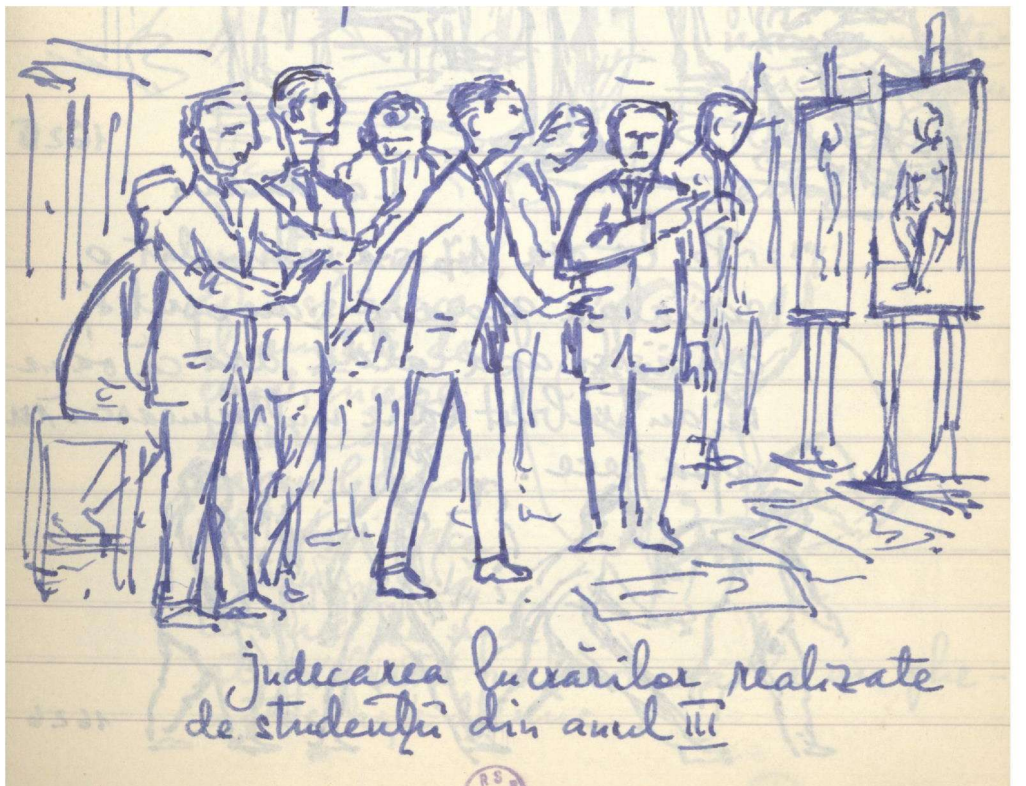 judecarea lucrărilor realizate
de studenții din anul III
RS